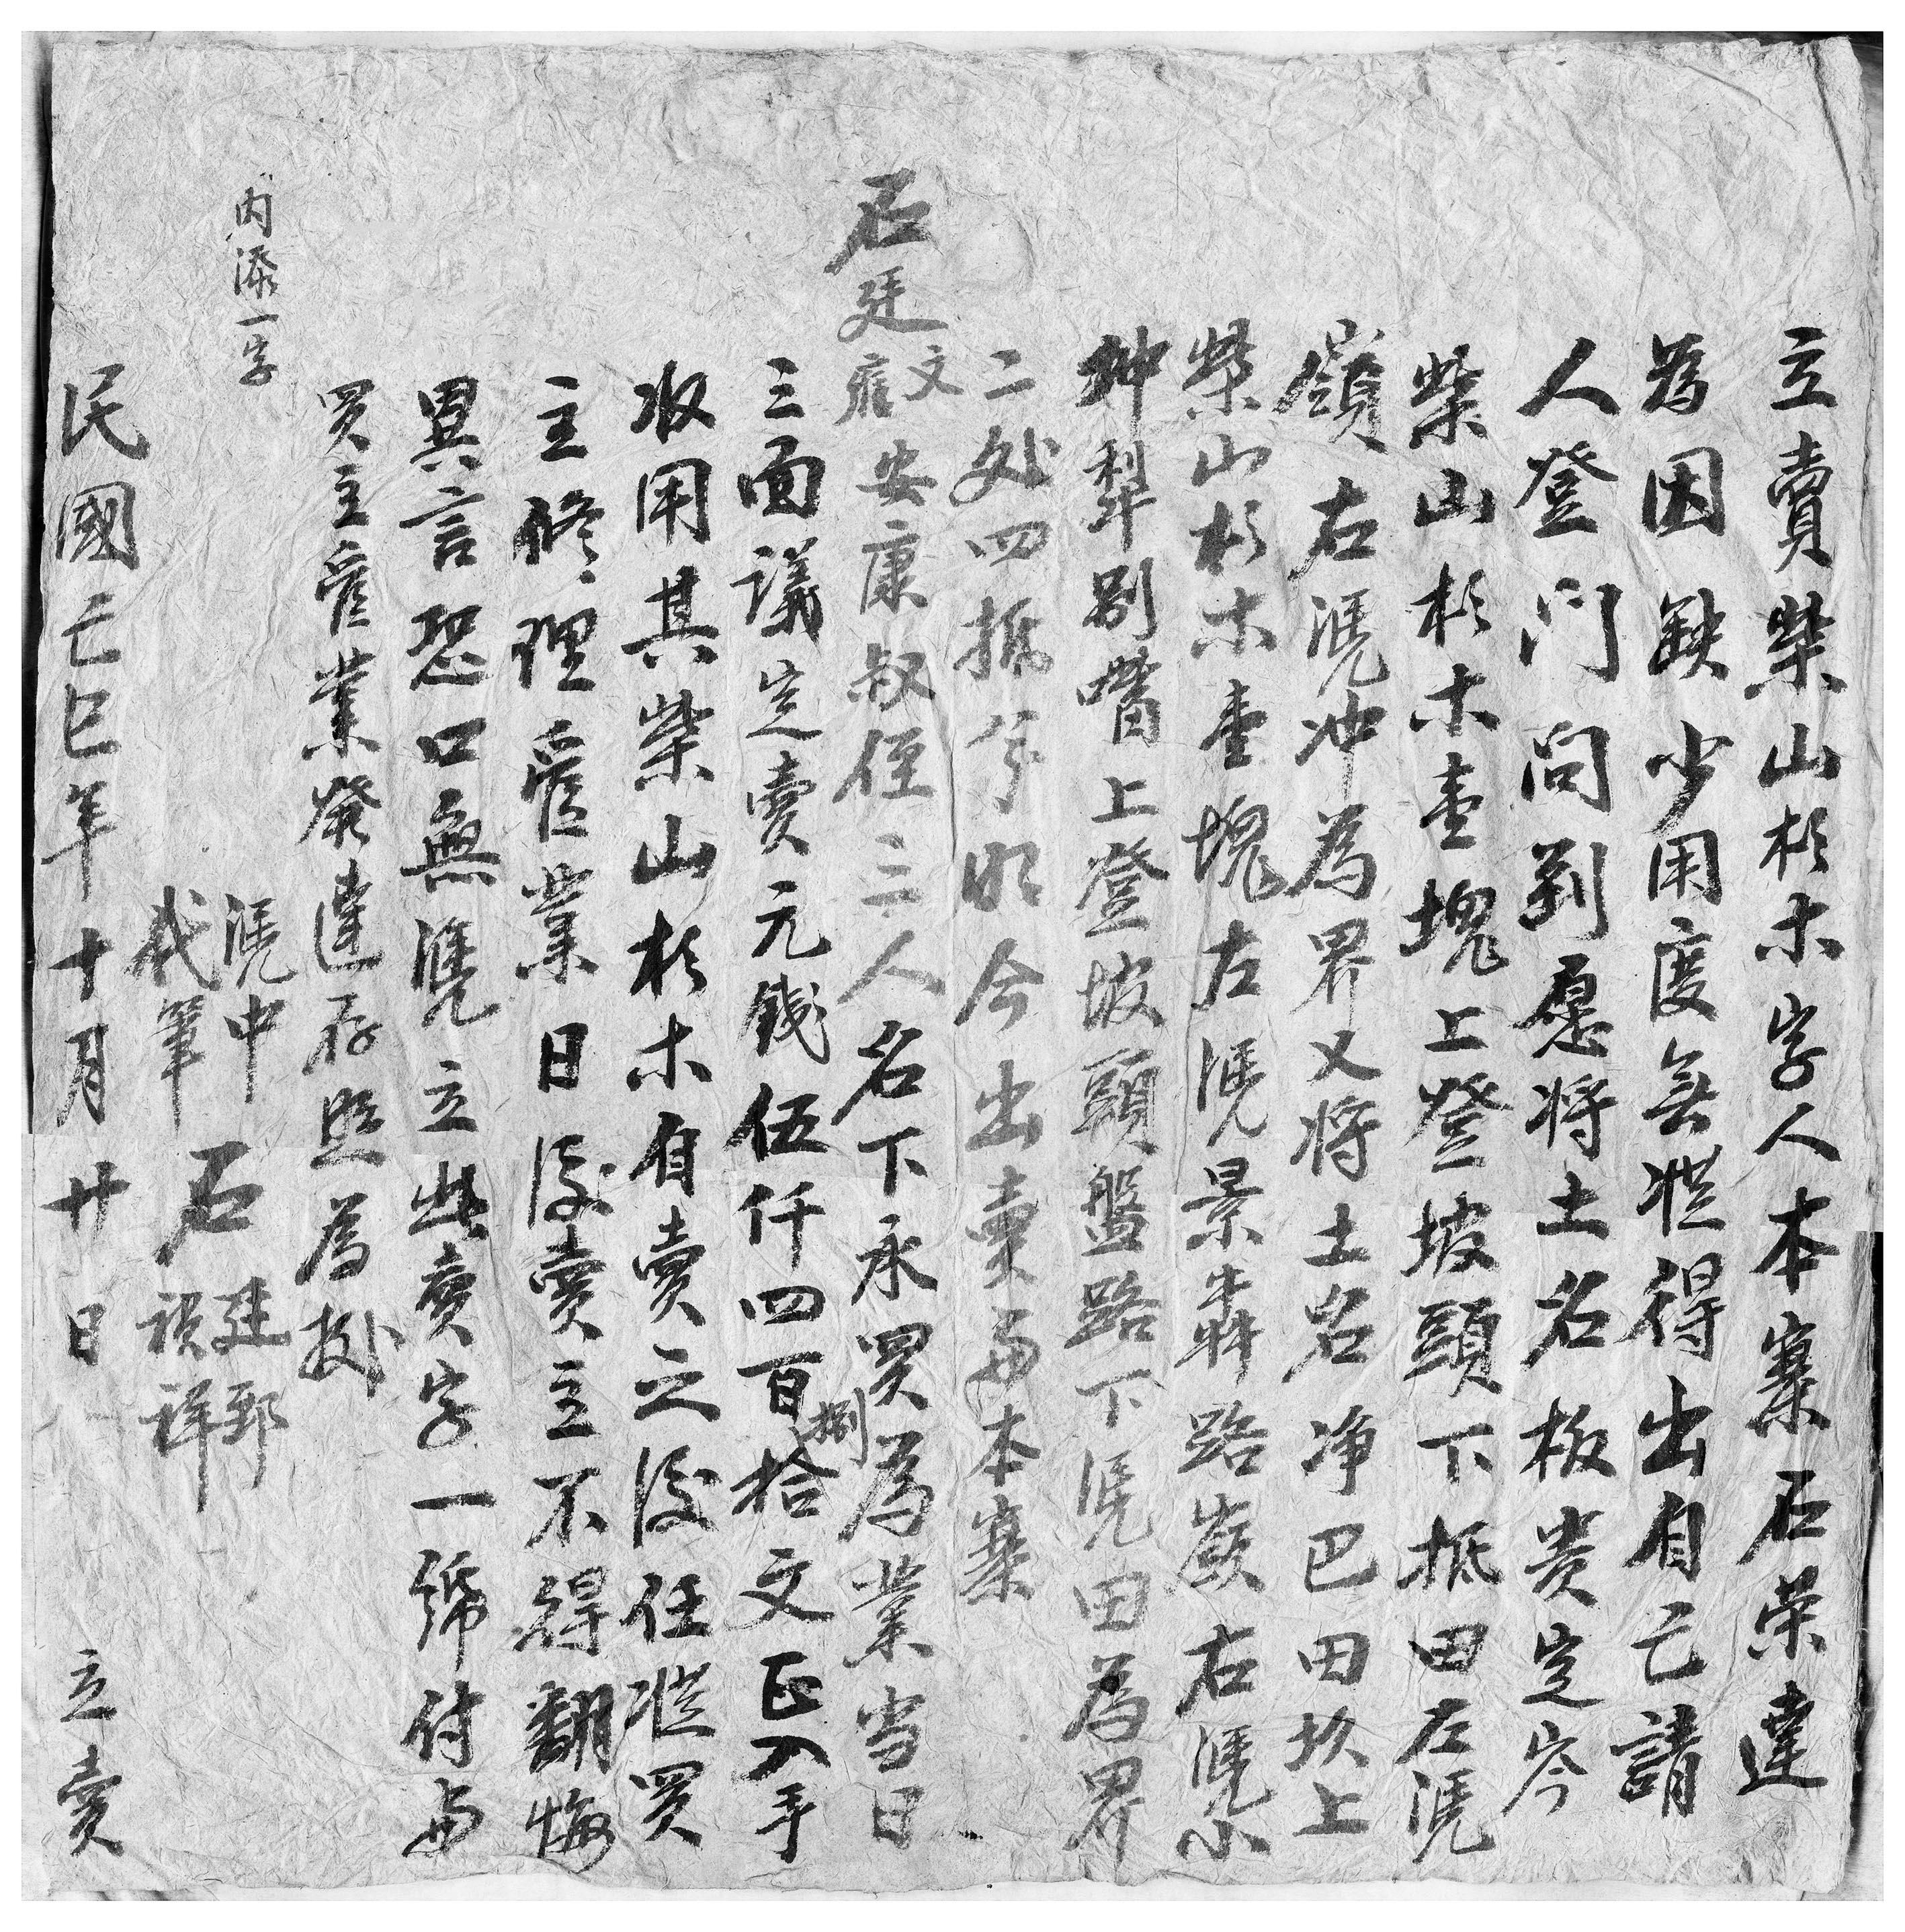 立賣柴山杉木字人本寨石荣達
為因缺少用度無從得出自己請
人登门问到愿将土名板贵定岑
柴山杉木壹塊上登坡頭下抵田左凴
嶺右凴冲為界又将土名净巴田坎上
柴山杉木壹塊左凴景犇路嵗右凴小
冲犂别嘴上登坡頭盤路下凴田為界
二处四抵分明今出賣与本寨
石廷文安康叔侄三人名下永買為業当日
三面議定賣元钱伍仟四百捌拾文正入手
收用其柴山杉木自賣之后任從買
主修理管業日後賣主不得翻悔
異言恐口無凴立此賣字一纸付与
買主管業發達存照為據
内添一字
凴中 石廷郅
代筆 祥
民國己巳年十月廿日 立賣